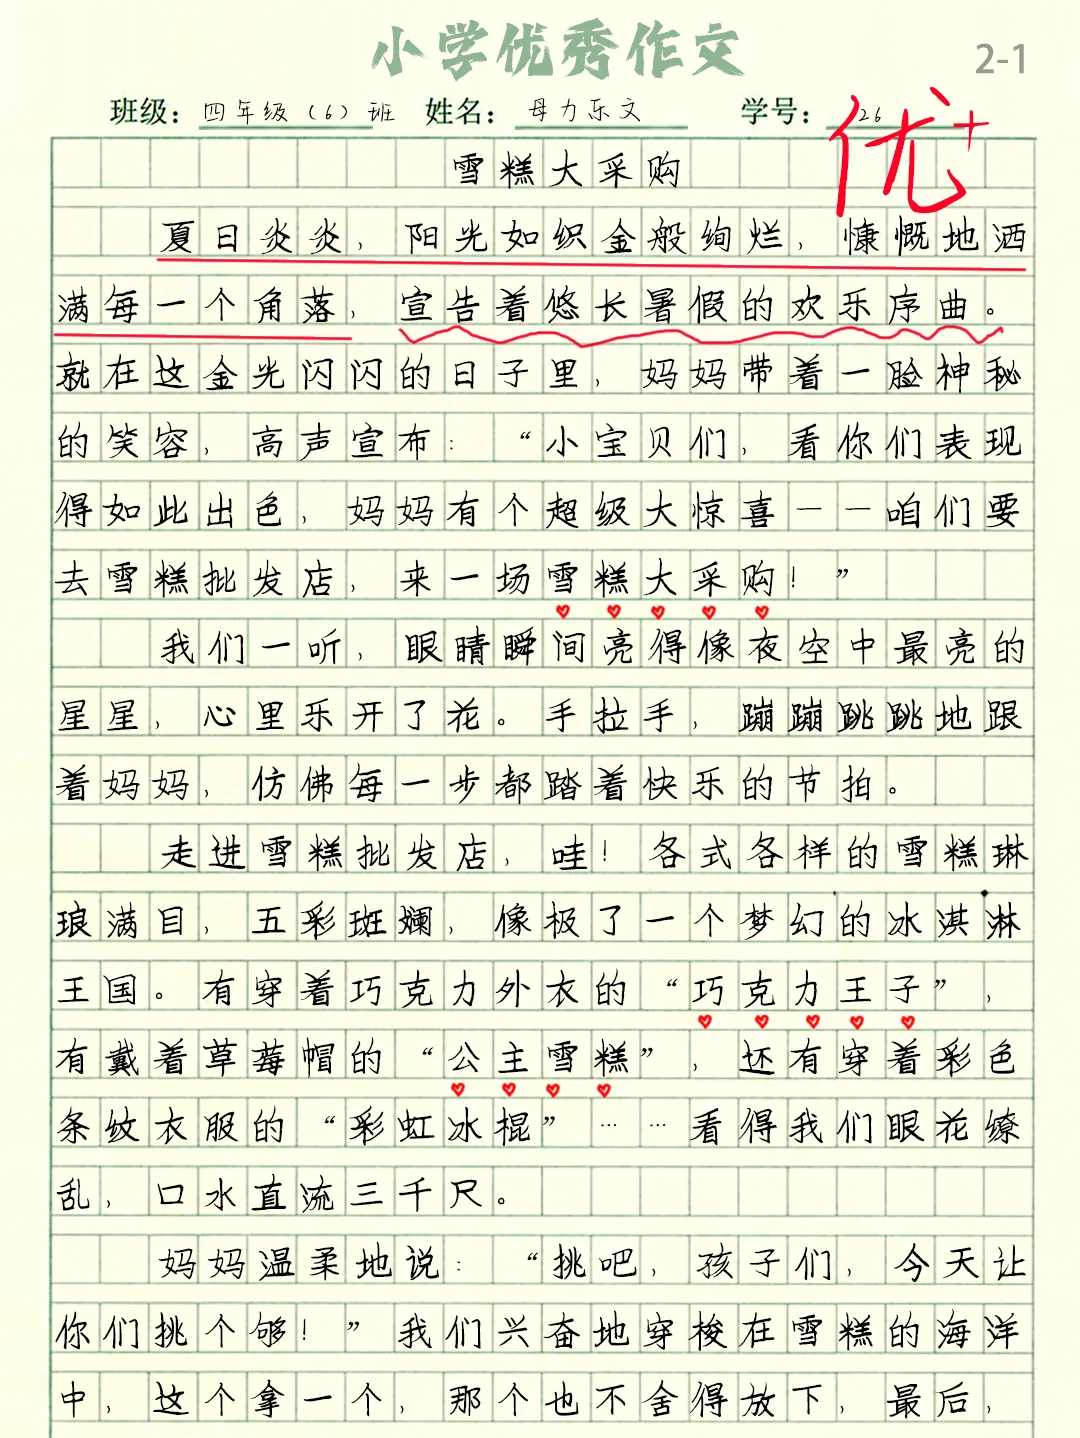 小学优秀作文
2-1
班级：四年级（6）班 姓名：母力乐文 学号：26
优+
雪糕大采购
夏日炎炎，阳光如织金般绚烂，慷慨地洒
满每一个角落，宣告着悠长暑假的欢乐序曲。
就在这金光闪闪的日子里，妈妈带着一脸神秘
的笑容，高声宣布：“小宝贝们，看你们表现
得如此出色，妈妈有个超级大惊喜——咱们要
去雪糕批发店，来一场雪糕大采购！”
我们一听，眼睛瞬间亮得像夜空中最亮的
星星，心里乐开了花。手拉手，蹦蹦跳跳地跟
着妈妈，仿佛每一步都踏着快乐的节拍。
走进雪糕批发店，哇！各式各样的雪糕琳
琅满目，五彩斑斓，像极了一个梦幻的冰淇淋
王国。有穿着巧克力外衣的“巧克力王子”，
有戴着草莓帽的“公主雪糕”，还有穿着彩色
条纹衣服的“彩虹冰棍”……看得我们眼花缭
乱，口水直流三千尺。
妈妈温柔地说：“挑吧，孩子们，今天让
你们挑个够！”我们兴奋地穿梭在雪糕的海洋
中，这个拿一个，那个也不舍得放下，最后，